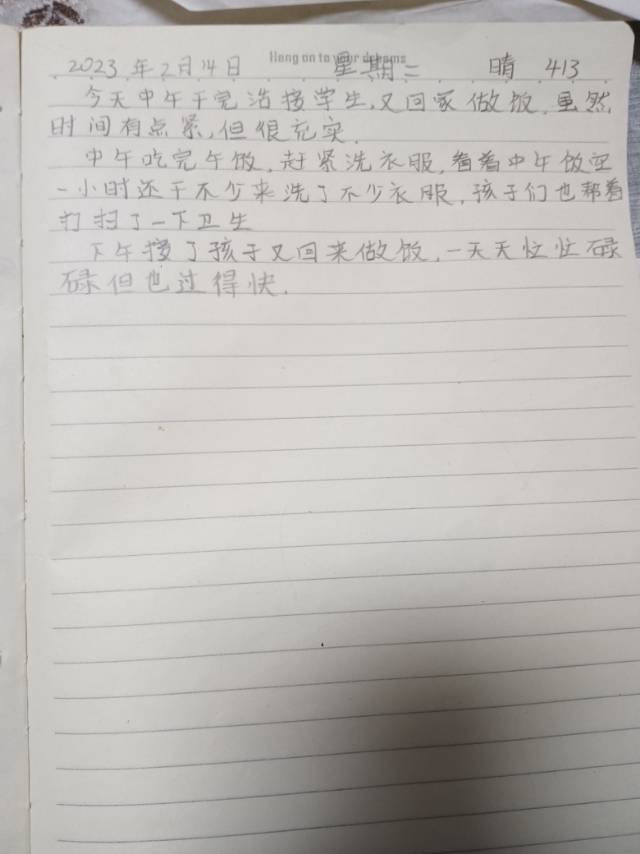 Hang on to your dreams
2023年2月14日 星期二 晴 413
今天中午干完活接学生,又回家做饭,虽然
时间有点紧,但很充实.
中午吃完午饭,赶紧洗衣服,看着中午饭空
一小时还干不少来洗了不少衣服,孩子们也帮着
打扫了一下卫生
下午接了孩子又回来做饭,一天天忙忙碌
碌但也过得快.